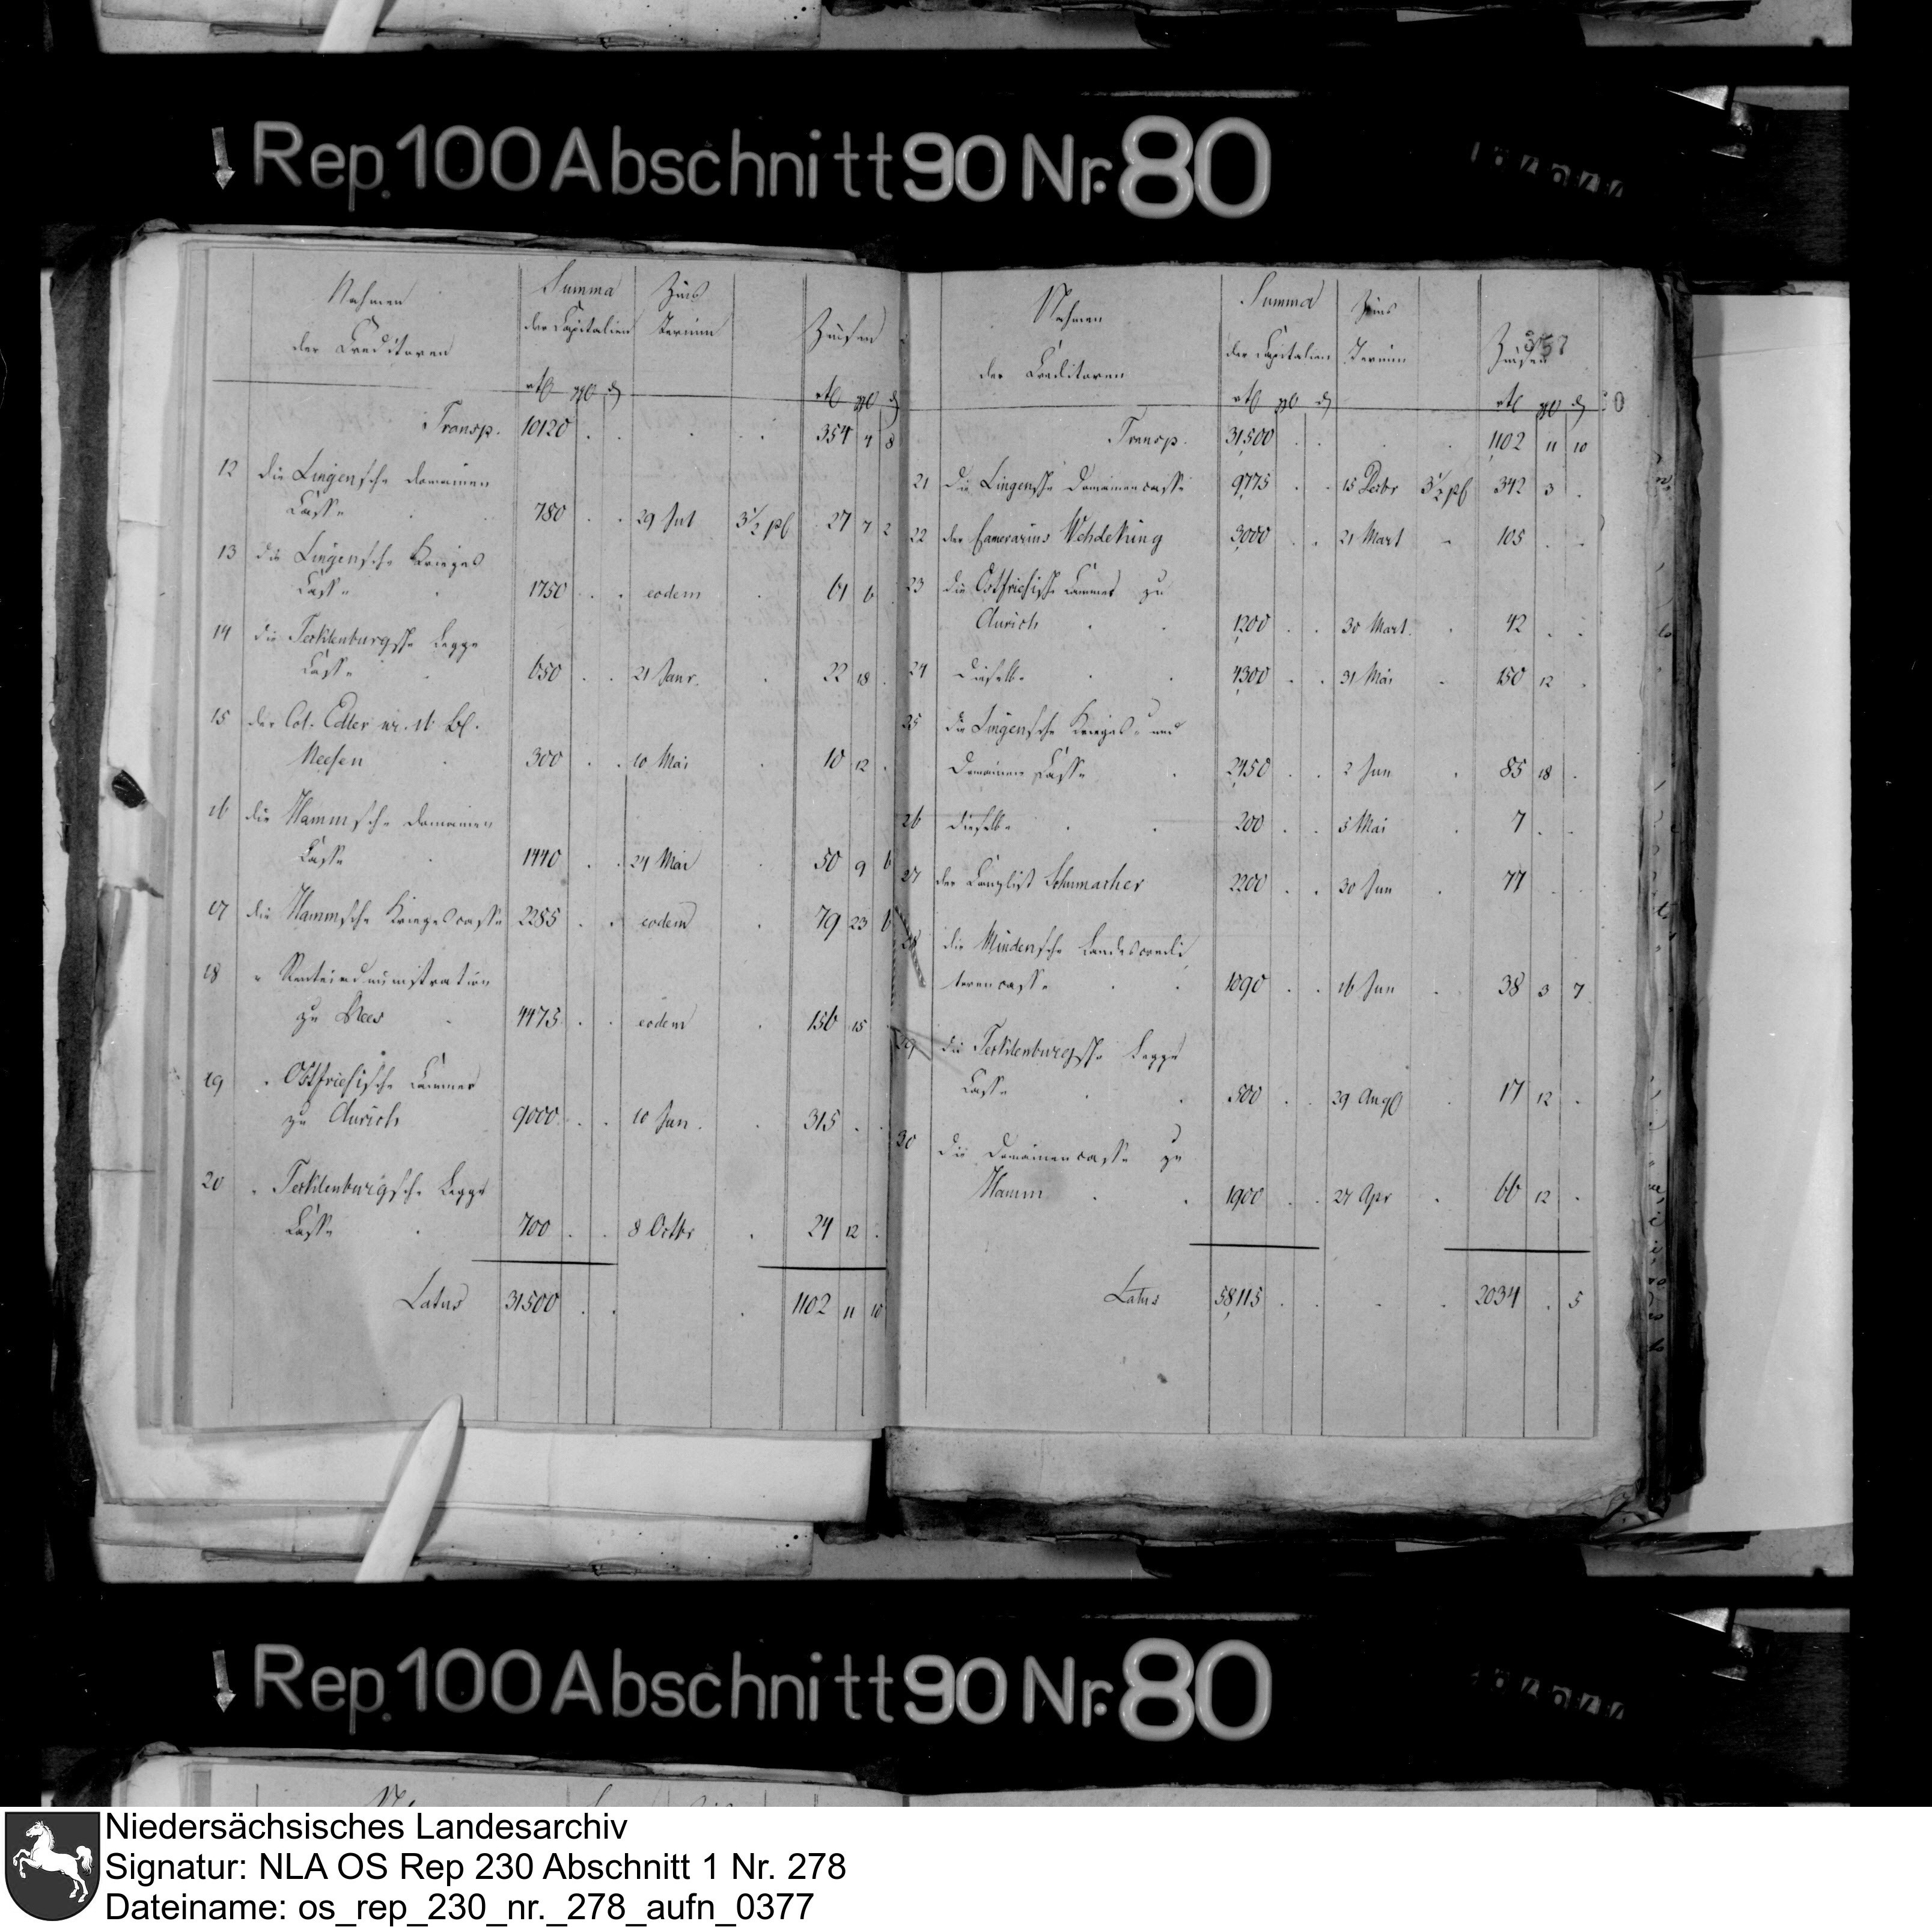 Rep. 100 Abschnitt 90 Nr. 80
Nahmen
der Creditoren
Summa
der Capitalien
Zins
Termin
Zinsen
rtl ggl d
rtl ggl d
Transp. 10120 . . . . 354 4 8
12 die Lingensche Domainen
Casse 780 . . 29 Jul 3½ pC 27 7 2
13 die Lingensche Krieges
Casse 1750 . . eodem . 61 6
14 die Tecklenburgsche Legge
Casse 650 . . 21 Janr. . 22 18 .
15 der Col. Edler nr. 11 Bf.
Neesen 300 . . 10 Mai . 10 12 .
16 die Hammsche Domainen
Casse 1440 . . 24 Mai . 50 9 6
17 die Hammsche Kriegescasse 2285 . . eodem . 79 23 6
18 " Renteiadministration
zu Rees 4475 . . eodem . 156 15
19 " Ostfriesische Cammer
zu Aurich 9000 . . 10 Jun. . 315 . .
20 " Tecklenburgsche Legge
Casse 700 . . 8 Octbr . 24 12 .
Latus 31500 . . . 1102 11 10
Nahmen
der Creditoren
Summa
der Capitalien
Zins
Termin
Zinsen
rtl ggl d
rtl ggl d
Transp. 31500 . . . . 1102 11 10
21 die Lingensche Domainencasse 9775 . . 15 Decbr 3½ pC 342 3 .
22 der Camerarius Wehdeking 3000 . . 21 Mart - 105 . .
23 die Ostfriesische Cammer zu
Aurich 1200 . . 30 Mart. . 42 . .
24 dieselbe 4300 . . 31 Mai - 150 12 .
25 die Lingensche Krieges- und
Domainen Casse 2450 . . 2 Jun . 85 18 .
26 dieselbe 200 . . 5 Mai . 7 . .
27 der Canzlist Schumacher 2200 . . 30 Jun . 77 . .
28 die Mindensche Landescredi
torencasse 1090 . . 16 Jun . 38 3 7
29 die Tecklenburgsche Legge
Casse 500 . . 29 Aug . 17 12 .
30 die Domainencasse zu
Hamm 1900 . . 27 Apr . 66 12 .
Latus 58115 . . . . 2034 . 5
Rep. 100 Abschnitt 90 Nr. 80
Niedersächsisches Landesarchiv
Signatur: NLA OS Rep 230 Abschnitt 1 Nr. 278
Dateiname: os_rep_230_nr._278_aufn_0377